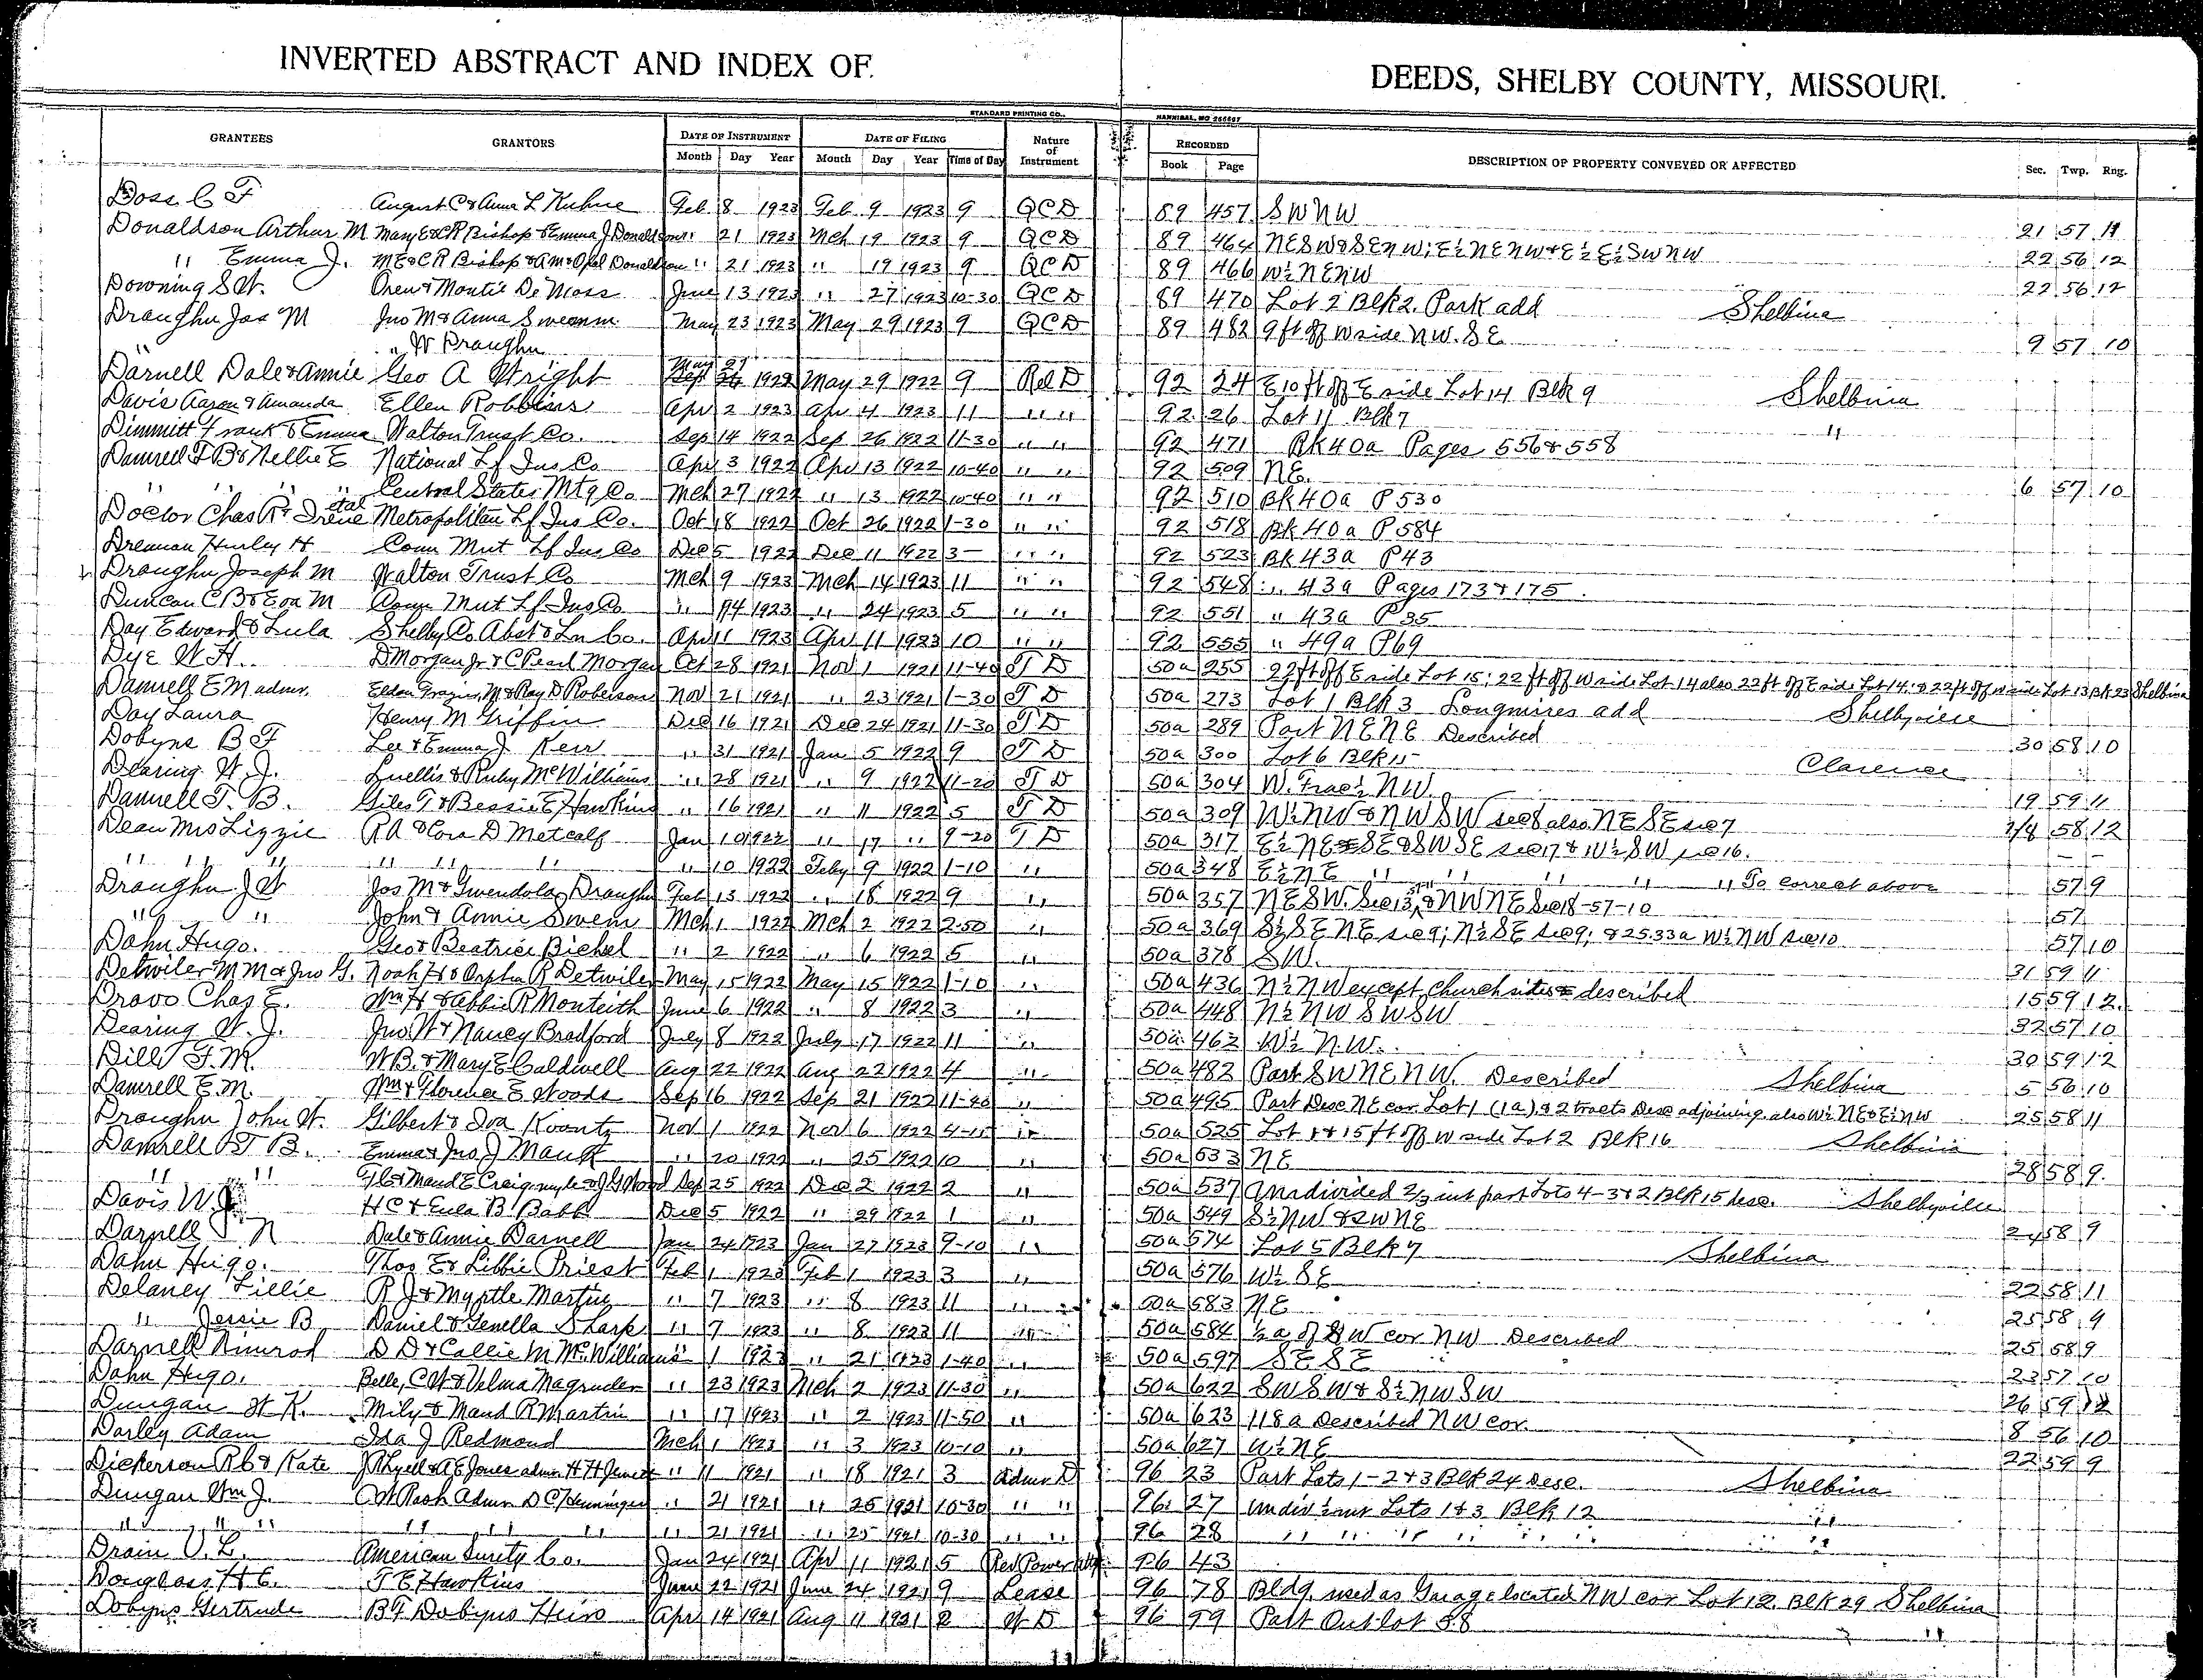 INVERTED ABSTRACT AND INDEX OF DEEDS, SHELBY COUNTY, MISSOURI.
STANDARD PRINTING CO., HANNIBAL, MO
GRANTEES GRANTORS DATE OF INSTRUMENT DATE OF FILING Nature of Instrument RECORDED DESCRIPTION OF PROPERTY CONVEYED OR AFFECTED Sec. Twp. Rng.
Month Day Year Month Day Year Time of Day Book Page
Doss C F August C & Anna L Kuhne Feb 8 1923 Feb 9 1923 9 QCD 89 457 SWNW 21 57 11
Donaldson Arthur M Mary E & CR Bishop & Emma J Donaldson " 21 1923 Mch 19 1923 9 QCD 89 464 NESW & SENW; E½ NENW & E½ E½ SWNW 22 56 12
" Emma J. ME & CR Bishop & AM & Opal Donaldson " 21 1923 " 19 1923 9 QCD 89 466 W½ NENW 22 56 12
Downing S W. Oren & Montie De Moss June 13 1923 " 27 1923 10-30 QCD 89 470 Lot 2 Blk 2. Park add Shelbina
Draughn Jas M Jno M & Anna Swearm May 23 1923 May 29 1923 9 QCD 89 482 9 ft off W side NW. SE 9 57 10
" W Draughn
Darnell Dale & Annie Geo A Wright May 27 1922 May 29 1922 9 Rel D 92 24 E 10 ft off E side Lot 14 Blk 9 Shelbina
Davis Aaron & Amanda Ellen Robbins Apr 2 1923 Apr 4 1923 11 " " 92 26 Lot 11 Blk 7 "
Dimmitt Frank & Emma Walton Trust Co. Sep 14 1922 Sep 26 1922 11-30 " " 92 471 Bk 40a Pages 556 & 558
Damrell T B & Nellie E National Lf Ins Co Apr 3 1922 Apr 13 1922 10-40 " " 92 509 NE. 6 57 10
" " " Central States Mtg Co Mch 27 1922 " 13 1922 10-40 " " 92 510 Bk 40a P 530
Doctor Chas R & Irene etal Metropolitan Lf Ins Co. Oct 18 1922 Oct 26 1922 1-30 " " 92 518 Bk 40a P 584
Drennan Hurley H Conn Mut Lf Ins Co Dec 5 1922 Dec 11 1922 3- " " 92 523 Bk 43a P 43
Draughn Joseph M Walton Trust Co Mch 9 1923 Mch 14 1923 11 " " 92 548 " 43a Pages 173 & 175.
Duncan C B & Eva M Conn Mut Lf Ins Co " 14 1923 " 24 1923 5 " " 92 551 " 43a P 35
Day Edward & Lula Shelby Co Abst & Ln Co. Apr 11 1923 Apr 11 1923 10 " " 92 555 " 49a P 69
Dye W H. D Morgan Jr & C Pearl Morgan Oct 28 1921 Nov 1 1921 11-40 T D 50a 255 22 ft off E side Lot 15; 22 ft off W side Lot 14 also 22 ft off E side Lot 14 & 22 ft off W side Lot 13 Bk 23 Shelbina
Damrell E M admr. Eldon Grazier, M & Ray D Roberson Nov 21 1921 " 23 1921 1-30 T D 50a 273 Lot 1 Blk 3 Longmires add Shelbyville
Day Laura Henry M Griffin Dec 16 1921 Dec 24 1921 11-30 T D 50a 289 Part NENE Described 30 58 10
Dobyns B F Lee & Emma J Kerr " 31 1921 Jan 5 1922 9 T D 50a 300 Lot 6 Blk 15 Clarence
Dearing W. J. Luellis & Ruby McWilliams " 28 1921 " 9 1922 11-20 T D 50a 304 W. Frac ½ NW. 19 59 11
Damrell T. B. Giles T & Bessie E Hawkins " 16 1921 " 11 1922 5 T D 50a 309 W½ NW & NWSW sec 8 also NESE sec 7 7/8 58 12
Dean Mrs Lizzie R A & Cora D Metcalf Jan 10 1922 " 17 " 9-20 T D 50a 317 E½ NE & SE & SWSE sec 17 & W½ SW sec 16. - -
" " " " " " " 10 1922 Feby 9 1922 1-10 " 50a 348 E½ NE " " " " " To correct above 57 9
Draughn J W Jos M & Gwendola Draughn Feb 13 1922 " 18 1922 9 " 50a 357 NESW. Sec 13, & NWNE Sec 18-57-10 57
" " John & Annie Swem Mch 1 1922 Mch 2 1922 2-50 " 50a 369 S½ SENE sec 9; N½ SE sec 9; & 25.33a W½ NW sec 10 57 10
Dahn Hugo. Geo & Beatrice Bichel " 2 1922 " 6 1922 5 " 50a 378 SW. 31 59 11
Detwiler M M & Jno G. Noah H & Orpha R Detwiler May 15 1922 May 15 1922 1-10 " 50a 436 N½ NW except church site described 15 59 12.
Dravo Chas E. Wm H & Abbie R Monteith June 6 1922 " 8 1922 3 " 50a 448 N½ NW SWSW 32 57 10
Dearing W. J. Jno W & Nancy Bradford July 8 1922 July 17 1922 11 " 50a 462 W½ N.W. 30 59 12
Dill F. M. W B. & Mary E Caldwell Aug 22 1922 Aug 22 1922 4 " 50a 482 Part SWNENW. Described Shelbina 5 56 10
Damrell E. M. Wm & Florence E Woods Sep 16 1922 Sep 21 1922 11-40 " 50a 495 Part Desc NE cor Lot 1 (1a) & 2 tracts Desc adjoining, also W½ NE & E½ NW 25 58 11
Draughn John W. Gilbert & Iva Koontz Nov 1 1922 Nov 6 1922 4-15 " 50a 525 Lot 1 & 15 ft off W side Lot 2 Blk 16 Shelbina
Damrell T B. Emma & Jno J Mauk " 20 1922 " 25 1922 10 " 50a 533 NE 28 58 9.
" " & Maud E Craigmyle & J G Wood Sep 25 1922 Dec 2 1922 2 " 50a 537 Undivided 2/3 int part Lots 4-3 & 2 Blk 15 desc. Shelbyville
Davis W J. H C & Eula B Babb Dec 5 1922 " 29 1922 1 " 50a 549 S½ NW & SWNE 24 58 9
Darnell J N Dale & Annie Darnell Jan 24 1923 Jan 27 1923 9-10 " 50a 574 Lot 5 Blk 7 Shelbina
Dahn Hugo. Thos E & Libbie Priest Feb 1 1923 Feb 1 1923 3 " 50a 576 W½ SE 22 58 11
Delaney Lillie R J & Myrtle Martin " 7 1923 " 8 1923 11 " 50a 583 NE 25 58 9
" Jessie B Daniel & Genella Sharp " 7 1923 " 8 1923 11 " 50a 584 ½ a of SW cor NW Described 25 58 9
Darnell Nimrod D D & Callie M McWilliams " 1 1923 " 21 1923 1-40 " 50a 597 SESE 23 57 10
Dahn Hugo. Belle, C W & Velma Magruder " 23 1923 Mch 2 1923 11-30 " 50a 622 SWSW & S½ NWSW 26 59 12
Dungan W K. Mily & Maud R Martin " 17 1923 " 2 1923 11-50 " 50a 623 118a Described NW cor. 8 56 10
Darley Adam Ida J Redmond Mch 1 1923 " 3 1923 10-10 " 50a 627 W½ NE 22 59 9
Dickerson R C & Kate & A E Jones admr H H " 11 1921 " 18 1921 3 Admr D 96 23 Part Lots 1-2 & 3 Blk 24 Desc. Shelbina
Dungan Wm J. C W Rash Admr D C Henninger " 21 1921 " 25 1921 10-30 " " 96 27 Undiv ½ int Lots 1 & 3 Blk 12 "
" " " " " " " 21 1921 " 25 1921 10-30 " " 96 28 " " " " " " " "
Drain V. L. American Surety Co. Jan 24 1921 Apr 11 1921 5 Rev Power Atty 96 43
Douglass H C. T E Hawkins June 22 1921 June 24 1921 9 Lease 96 78 Bldg. used as Garage located NW cor Lot 12. Blk 29 Shelbina
Dobyns Gertrude B F Dobyns Heirs Apr 14 1921 Aug 11 1921 2 W D 96 99 Part Outlot 38 "